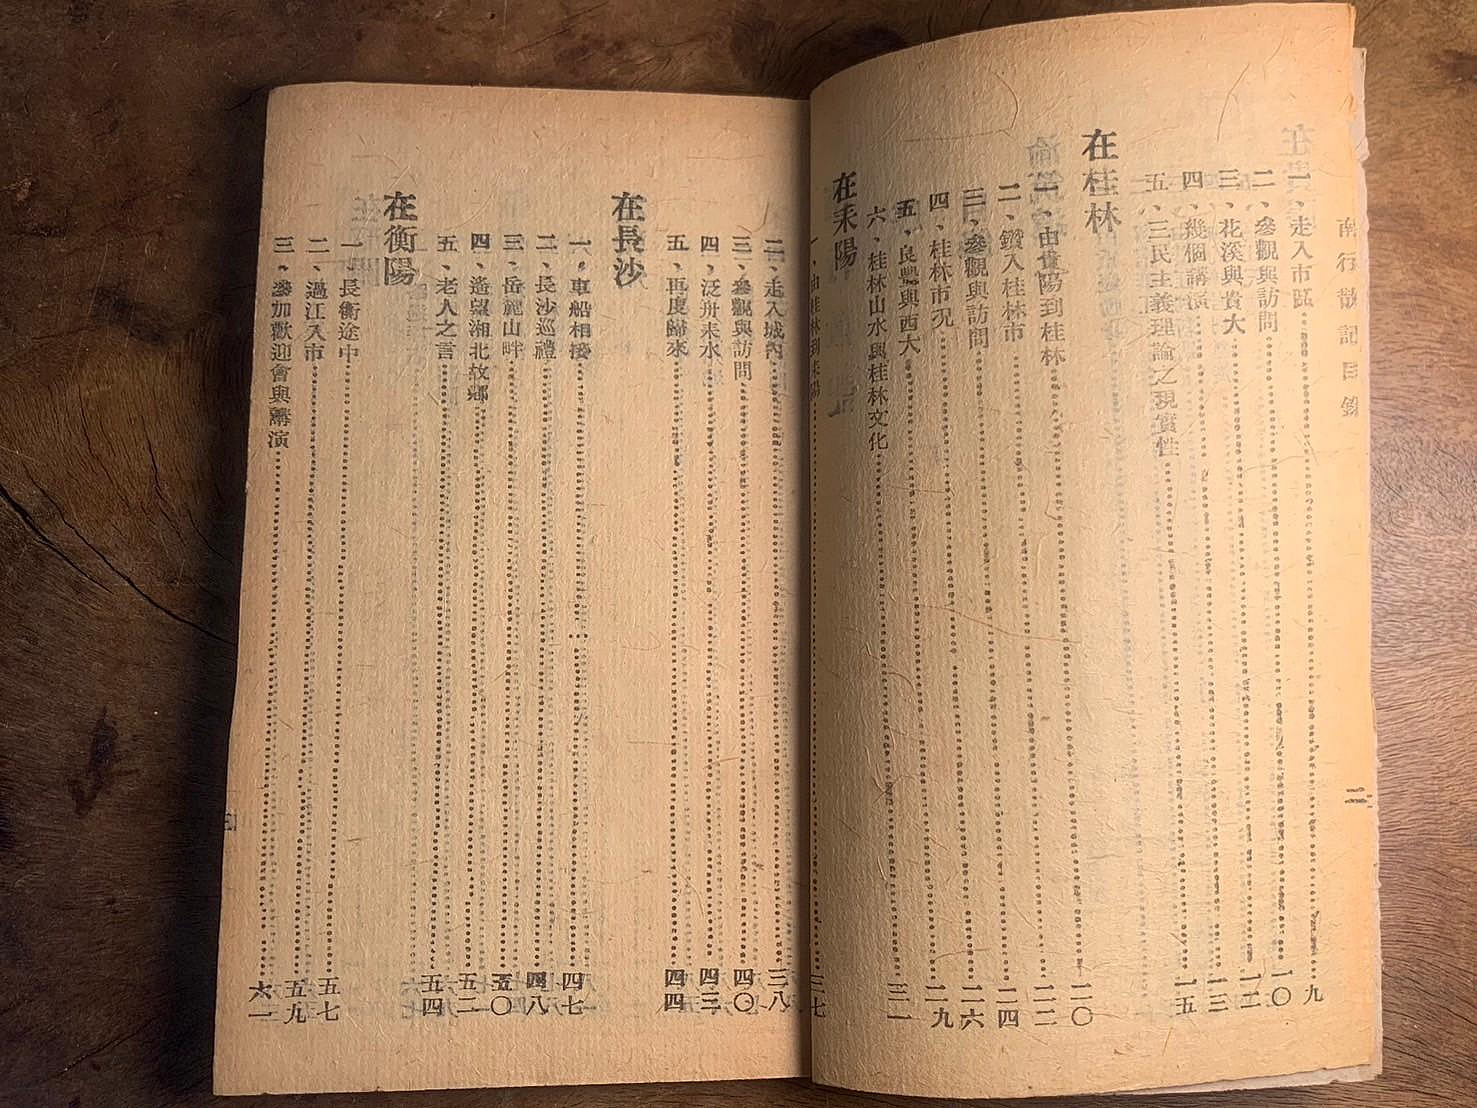 南行散記目錄
二
一、走入市區……九
二、參觀與訪問……一〇
三、花溪與貴大……一二
四、幾個講演……一三
五、三民主義理論之現實性……一五
在桂林
一、由貴陽到桂林……二〇
二、鑽入桂林市……二二
三、參觀與訪問……二四
四、桂林市況……二六
五、良豐與西大……二九
六、桂林山水與桂林文化……三一
在耒陽
一、由桂林到耒陽……三七
二、走入城內……三八
三、參觀與訪問……四〇
四、泛舟耒水……四三
五、再度歸來……四四
在長沙
一、車船相接……四七
二、長沙巡禮……四八
三、岳麓山畔……五〇
四、遙望湘北故鄉……五二
五、老人之言……五四
在衡陽
一、長衡途中……五七
二、過江入市……五九
三、參加歡迎會與講演……六一
三